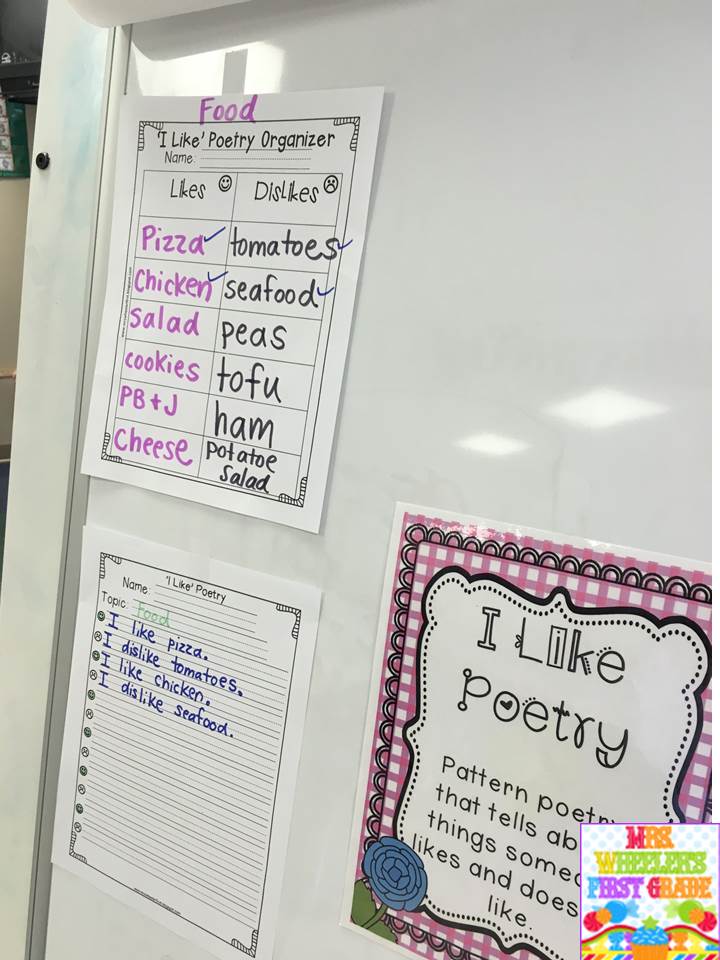 Food
'I Like' Poetry Organizer
Name:
Likes Dislikes
Pizza tomatoes
Chicken seafood
salad peas
cookies tofu
PB+J ham
Cheese potatoe
salad
'I Like' Poetry
Name:
Topic: Food
I like pizza.
I dislike tomatoes.
I like chicken.
I dislike seafood.
I Like
Poetry
Pattern poetry
that tells
things
likes and does
like.
MRS.
WHEELER'S
FIRST GRADE